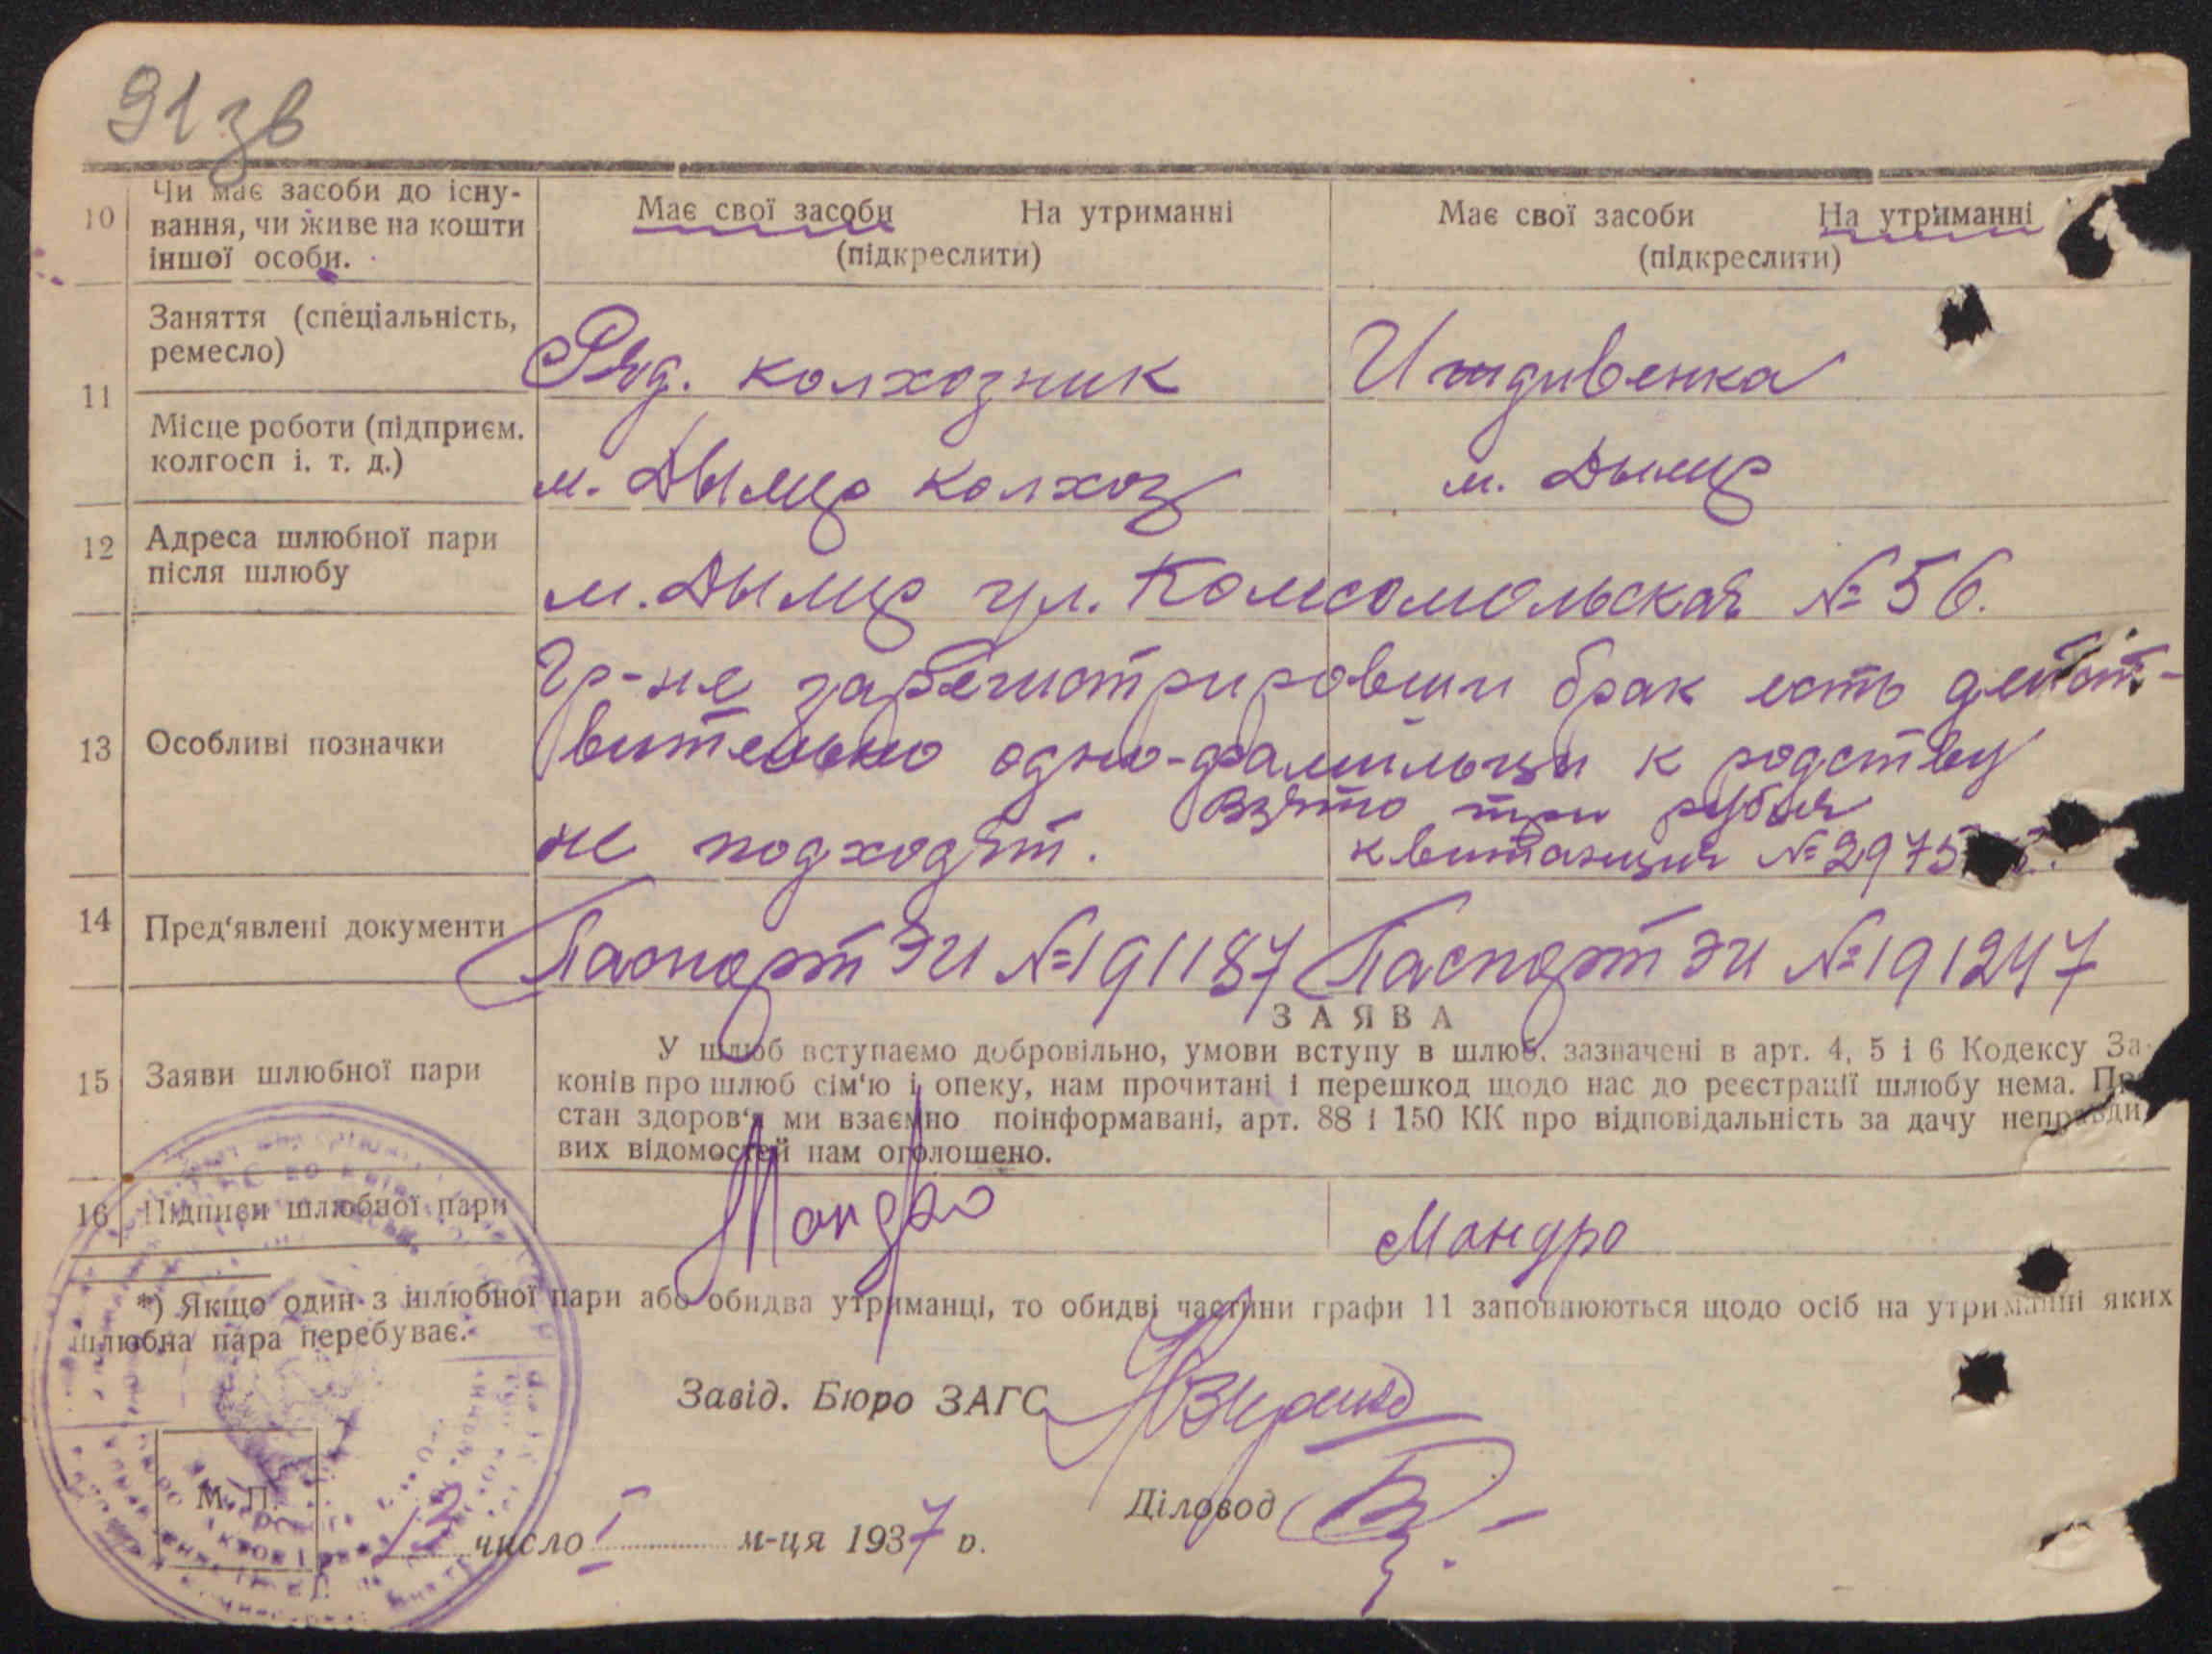 91зв
10
Чи має засоби до існу-
вання, чи живе на кошти
іншої особи.
Має свої засоби На утриманні
(підкреслити)
Має свої засоби На утриманні
(підкреслити)
11
Заняття (спеціальність,
ремесло)
Ряд. колхозник
Иждивенка
Місце роботи (підприєм.
колгосп і. т. д.)
м. Дымер колхоз
м. Дымер
12
Адреса шлюбної пари
після шлюбу
м. Дымер ул. Комсомольская № 56.
13
Особливі позначки
Гр-не зарегистрировши брак есть дейст-
вительно одно-фамильцы к родству
не подходят.
Взято три рубля
квитанция № 2975
14
Пред‘явлені документи
Паспорт ЭИ №191187
Паспорт ЭИ №191247
15
Заяви шлюбної пари
ЗАЯВА
У шлюб вступаємо добровільно, умови вступу в шлюб. зазначені в арт. 4, 5 і 6 Кодексу За-
конів про шлюб сім‘ю і опеку, нам прочитані і перешкод щодо нас до реєстрації шлюбу нема. Пр
стан здоров‘я ми взаємно поінформавані, арт. 88 і 150 КК про відповідальність за дачу неправди
вих відомостей нам оголошено.
16
Підписи шлюбної пари
Мандро
Мандро
*) Якщо один з шлюбної пари або обидва утриманці, то обидві частини графи 11 заповнюються щодо осіб на утриманні яких
шлюбна пара перебуває.
Завід. Бюро ЗАГС
Діловод
М. П.
13 число I м-ця 1937 р.